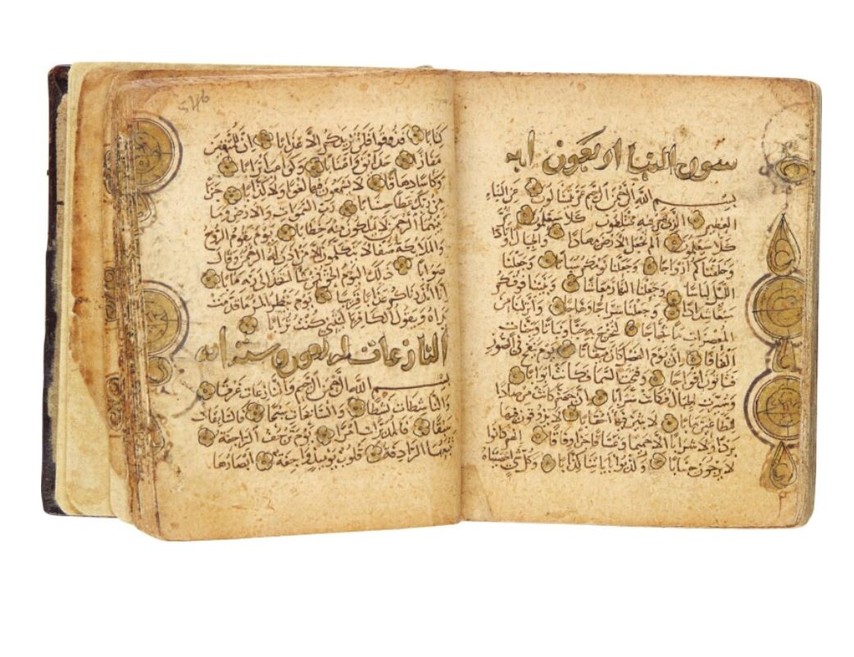 سورة النبأ اربعون اية
بسم الله الرحمن الرحيم عم يتساءلون عن النباء
العظيم الذي هم فيه مختلفون كلا سيعلمون ثم
كلا سيعلمون الم نجعل الارض مهادا والجبال اوتادا
وخلقناكم ازواجا وجعلنا نومكم سباتا وجعلنا
الليل لباسا وجعلنا النهار معاشا وبنينا فوقكم
سبعا شدادا وجعلنا سراجا وهاجا وانزلنا من
المعصرات ماء ثجاجا لنخرج به حبا ونباتا وجنات
الفافا ان يوم الفصل كان ميقاتا يوم ينفخ في الصور
فتاتون افواجا وفتحت السماء فكانت ابوابا
وسيرت الجبال فكانت سرابا ان جهنم كانت مرصادا
للطاغين مابا لابثين فيها احقابا لا يذوقون فيها
بردا ولا شرابا الا حميما وغساقا جزاء وفاقا انهم كانوا
لا يرجون حسابا وكذبوا باياتنا كذابا وكل شيء احصيناه
كتابا فذوقوا فلن نزيدكم الا عذابا ان للمتقين
مفازا حدائق واعنابا وكواعب اترابا
وكاسا دهاقا لا يسمعون فيها لغوا ولا كذابا جزاء
من ربك عطاء حسابا رب السموات والارض وما
بينهما الرحمن لا يملكون منه خطابا يوم يقوم الروح
والملائكة صفا لا يتكلمون الا من اذن له الرحمن وقال
صوابا ذلك اليوم الحق فمن شاء اتخذ الى ربه مابا
انا انذرناكم عذابا قريبا يوم ينظر المرء ما قدمت
يداه ويقول الكافر يا ليتني كنت ترابا
النازعات اربعون وستة اية
بسم الله الرحمن الرحيم والنازعات غرقا
والناشطات نشطا والسابحات سبحا فالسابقات
سبقا فالمدبرات امرا يوم ترجف الراجفة
تتبعها الرادفة قلوب يومئذ واجفة ابصارها